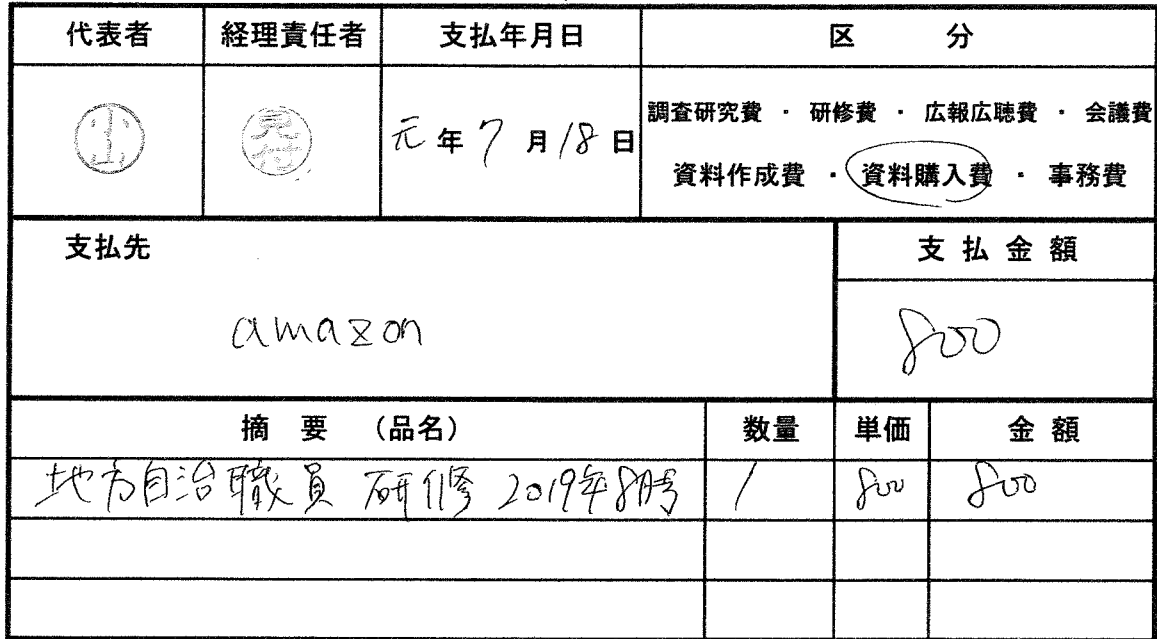 代表者 経理責任者 支払年月日 区 分
小山 見付 元年7月18日
調査研究費 ・ 研修費 ・ 広報広聴費 ・ 会議費
資料作成費 ・ 資料購入費 ・ 事務費
支払先 支払金額
amazon 800
摘 要 (品名) 数量 単価 金 額
地方自治職員 研修 2019年8月号 1 800 800